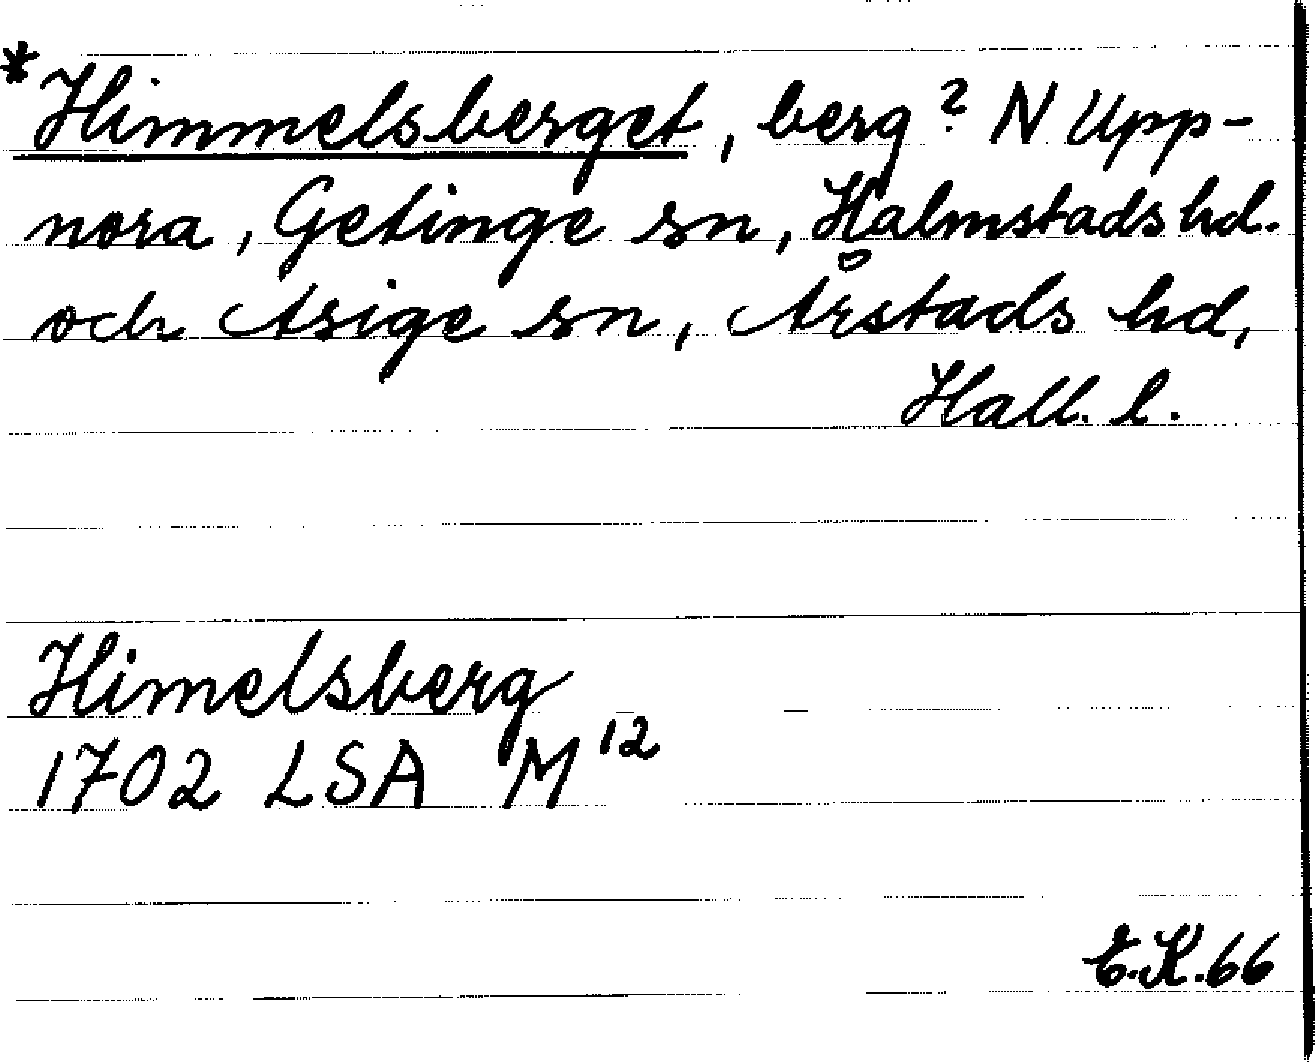 *Himmelsberget, berg? N Upp-
nora, Getinge sn, Halmstads hd.
och Asige sn, Årstads hd,
Hall. l.
Himelsberg
1702 LSA M¹²
E.K.66